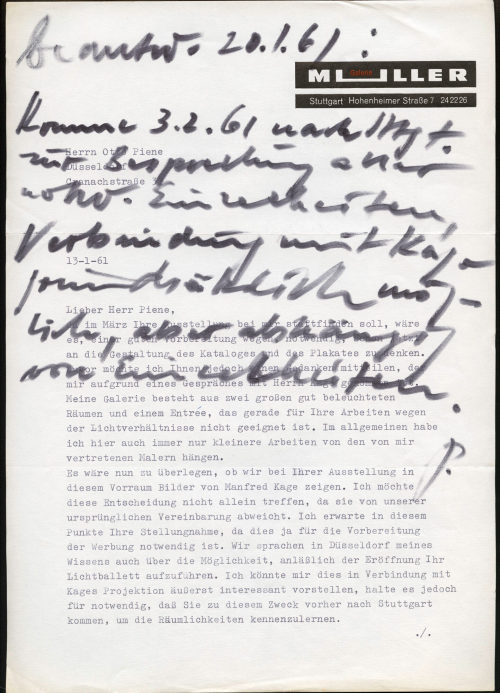 beantw. 20.1.61:
Galerie
MÜLLER
Stuttgart Hohenheimer Straße 7 24 22 26
Komme 3.2.61 nach Stgt.
zur Besprechung aller
notw. Einzelheiten,
Verbindung mit Kage
grundsätzlich mög-
lich, aber abhängig
von Einzelheiten.
P.
Herrn Otto Piene
Düsseldorf
Cranachstraße
13-1-61
Lieber Herr Piene,
im März Ihre Ausstellung bei mir stattfinden soll, wäre
es, einer guten Vorbereitung wegen, notwendig,
an die Gestaltung des Kataloges und des Plakates zu denken.
möchte ich Ihnen jedoch einen Gedanken mitteilen, der
mir aufgrund eines Gespräches mit Herrn
Meine Galerie besteht aus zwei großen gut beleuchteten
Räumen und einem Entrée, das gerade für Ihre Arbeiten wegen
der Lichtverhältnisse nicht geeignet ist. Im allgemeinen habe
ich hier auch immer nur kleinere Arbeiten von den von mir
vertretenen Malern hängen.
Es wäre nun zu überlegen, ob wir bei Ihrer Ausstellung in
diesem Vorraum Bilder von Manfred Kage zeigen. Ich möchte
diese Entscheidung nicht allein treffen, da sie von unserer
ursprünglichen Vereinbarung abweicht. Ich erwarte in diesem
Punkte Ihre Stellungnahme, da dies ja für die Vorbereitung
der Werbung notwendig ist. Wir sprachen in Düsseldorf meines
Wissens auch über die Möglichkeit, anläßlich der Eröffnung Ihr
Lichtballett aufzuführen. Ich könnte mir dies in Verbindung mit
Kages Projektion äußerst interessant vorstellen, halte es jedoch
für notwendig, daß Sie zu diesem Zweck vorher nach Stuttgart
kommen, um die Räumlichkeiten kennenzulernen.
./.